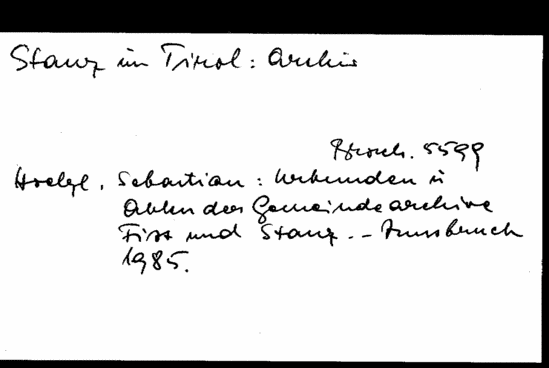 Stanz im Tirol: Archiv
Brosch. 5599
Hoelzl, Sebastian: Urkunden u
Akten der Gemeindearchive
Fiss und Stanz. – Innsbruck
1985.